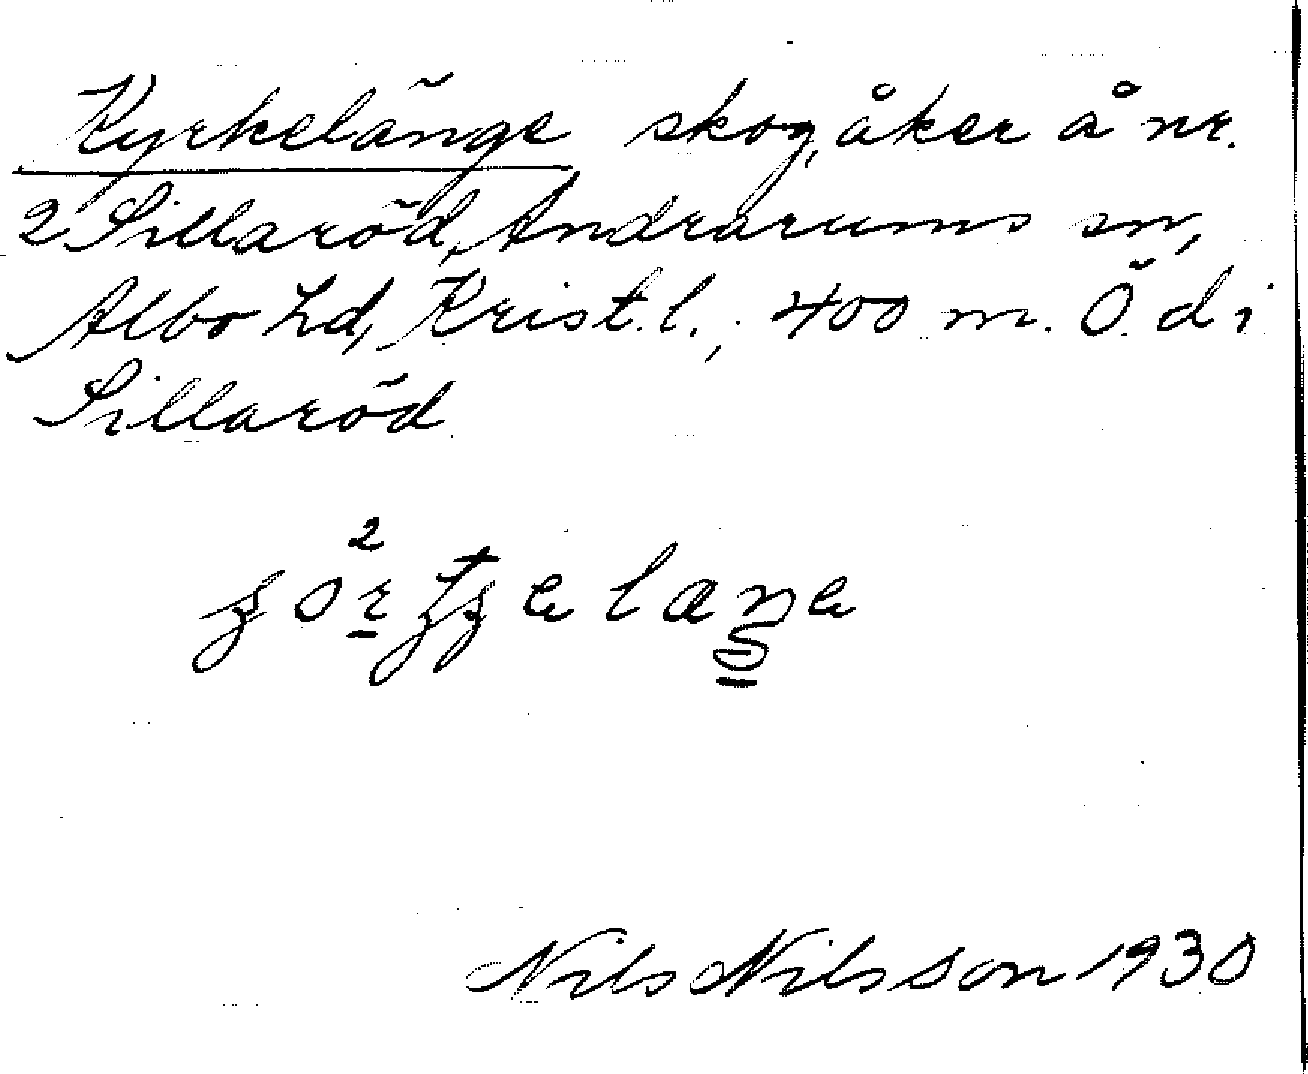 Kyrkelänge skog, åker å nr.
2 Sillaröd, Andrarums sn,
Albo hd, Krist. l., 400 m. Ö. d i
Sillaröd
Nils Nilsson 1930